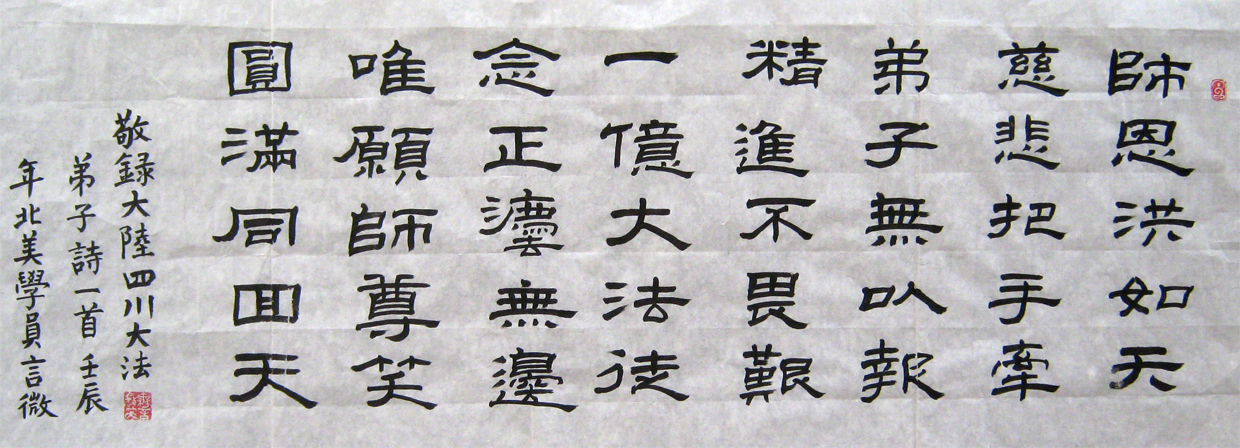 師恩洪如天
慈悲把手牽
弟子無以報
精進不畏艱
一億大法徒
念正灋無邊
唯願師尊笑
圓滿同囬天
敬録大陸四川大法
弟子詩一首 壬辰
年北美學員言微